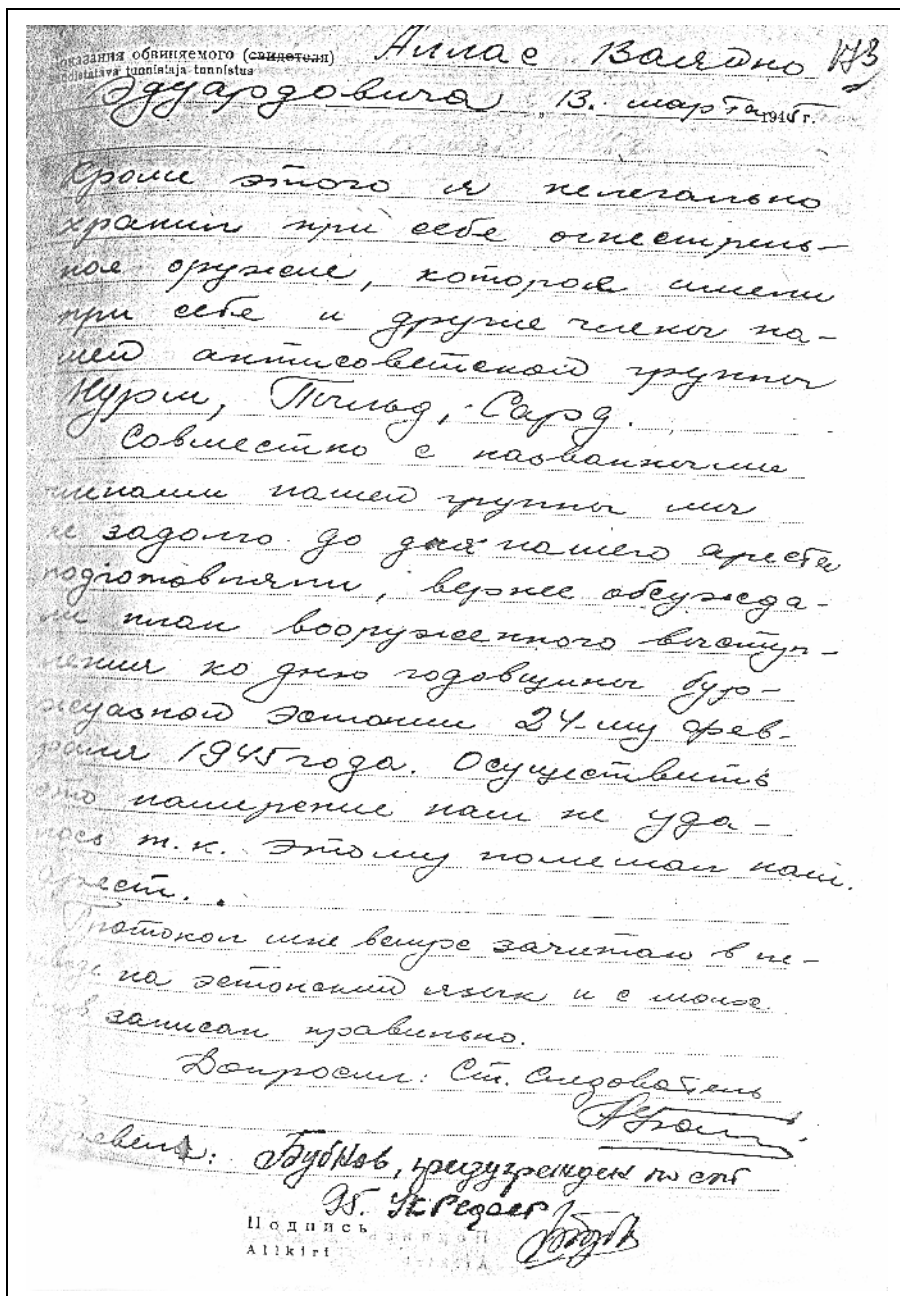 Показания обвиняемого (свидетеля) Аллас Вальдно 173
tunnistaja tunnistus
Эдуардовича „13. марта 1945 г.
Кроме этого я нелегально
хранил при себе огнестрель-
ное оружие, которое имели
при себе и другие члены на-
шей антисоветской группы
Нурм, Тыльд, Сард.
Совместно с названными
членами нашей группы мы
не задолго до дня нашего ареста
подготовляли, вернее обсужда-
ли план вооруженного выступ-
ления ко дню годовщины бур-
жуазной Эстонии 24-му фев-
раля 1945 года. Осуществить
это намерение нам не уда-
лось т.к. этому помешал наш.
арест.
Протокол мне вслух зачитан в пе-
реводе на эстонский язык и с моих
слов записан правильно.
Допросил: Ст. Следователь
Перевел: Бубнов, предупрежден по ст
95. УК РСФСР
Подпись
Allkiri